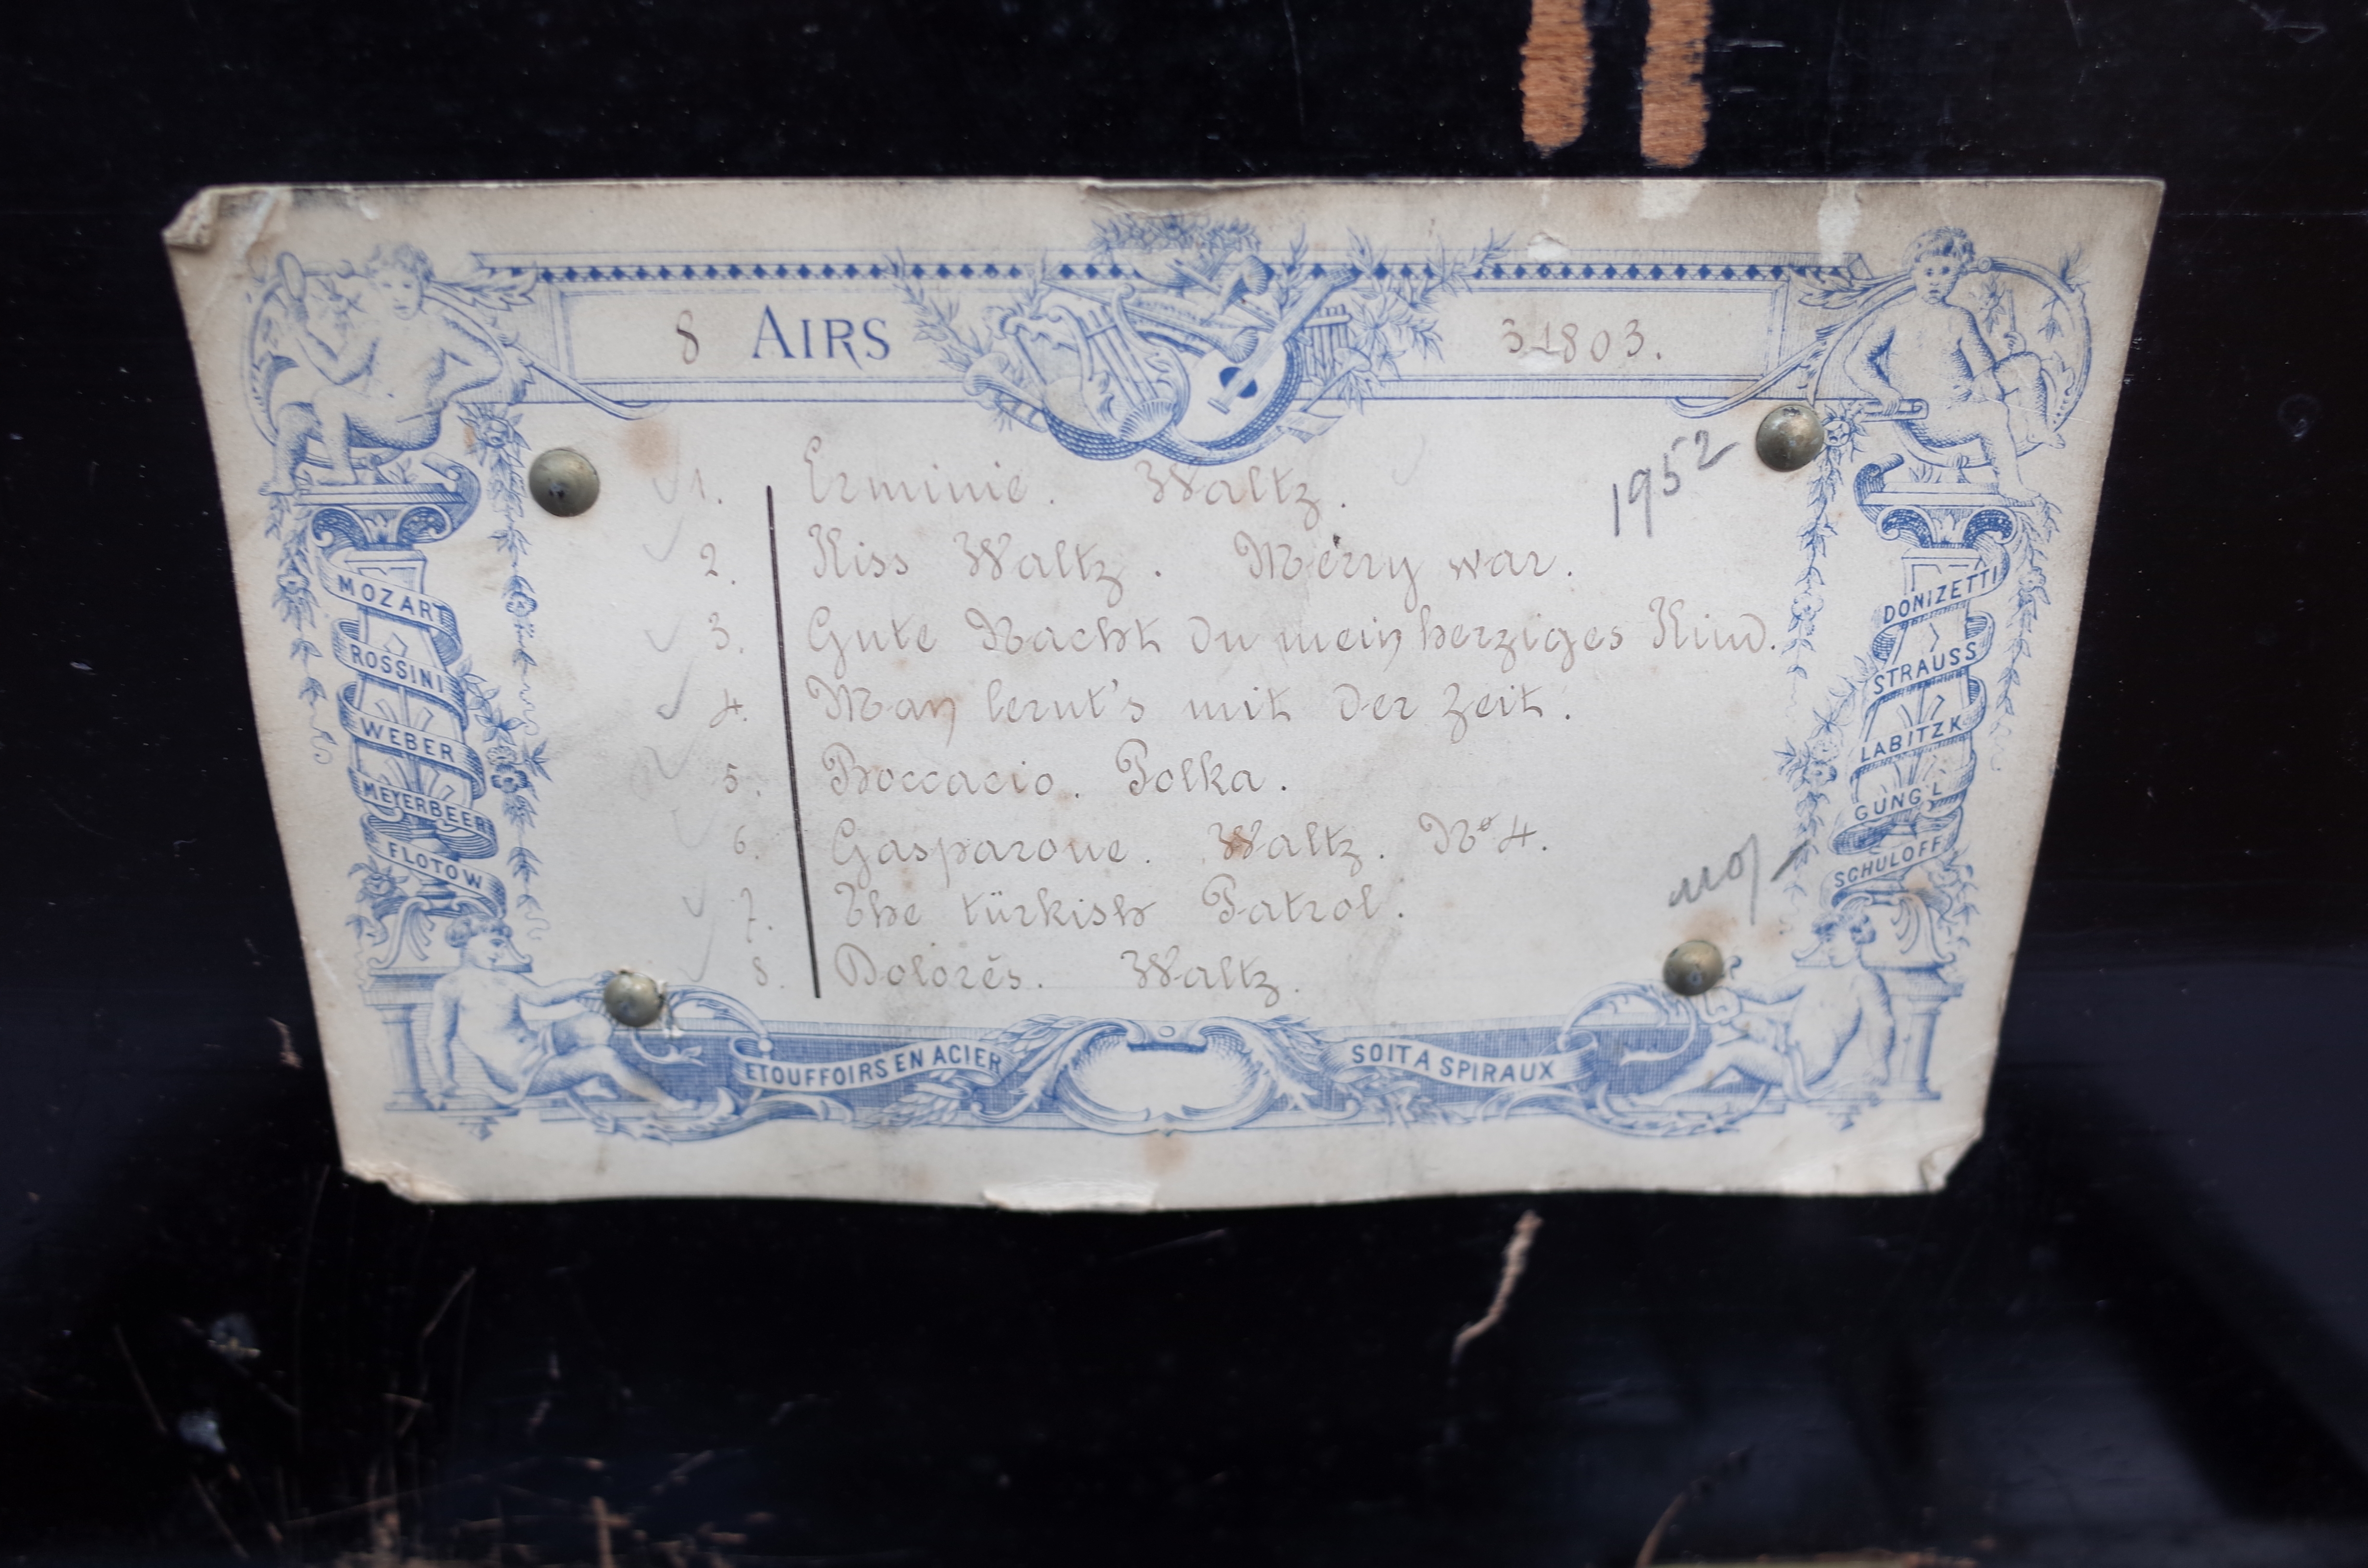 8 AIRS 31803.
1952
1. Erminie. Waltz.
2. Kiss Waltz. Merry war.
3. Gute Nacht du mein herziges Kind.
4. Man lernt's mit der Zeit.
5. Boccacio. Polka.
6. Gasparone. Waltz. Nº 4.
7. The türkish Patrol.
8. Dolorès. Waltz.
MOZART
ROSSINI
WEBER
MEYERBEER
FLOTOW
DONIZETTI
STRAUSS
LABITZK
GUNG'L
SCHULOFF
ETOUFFOIRS EN ACIER
SOIT A SPIRAUX